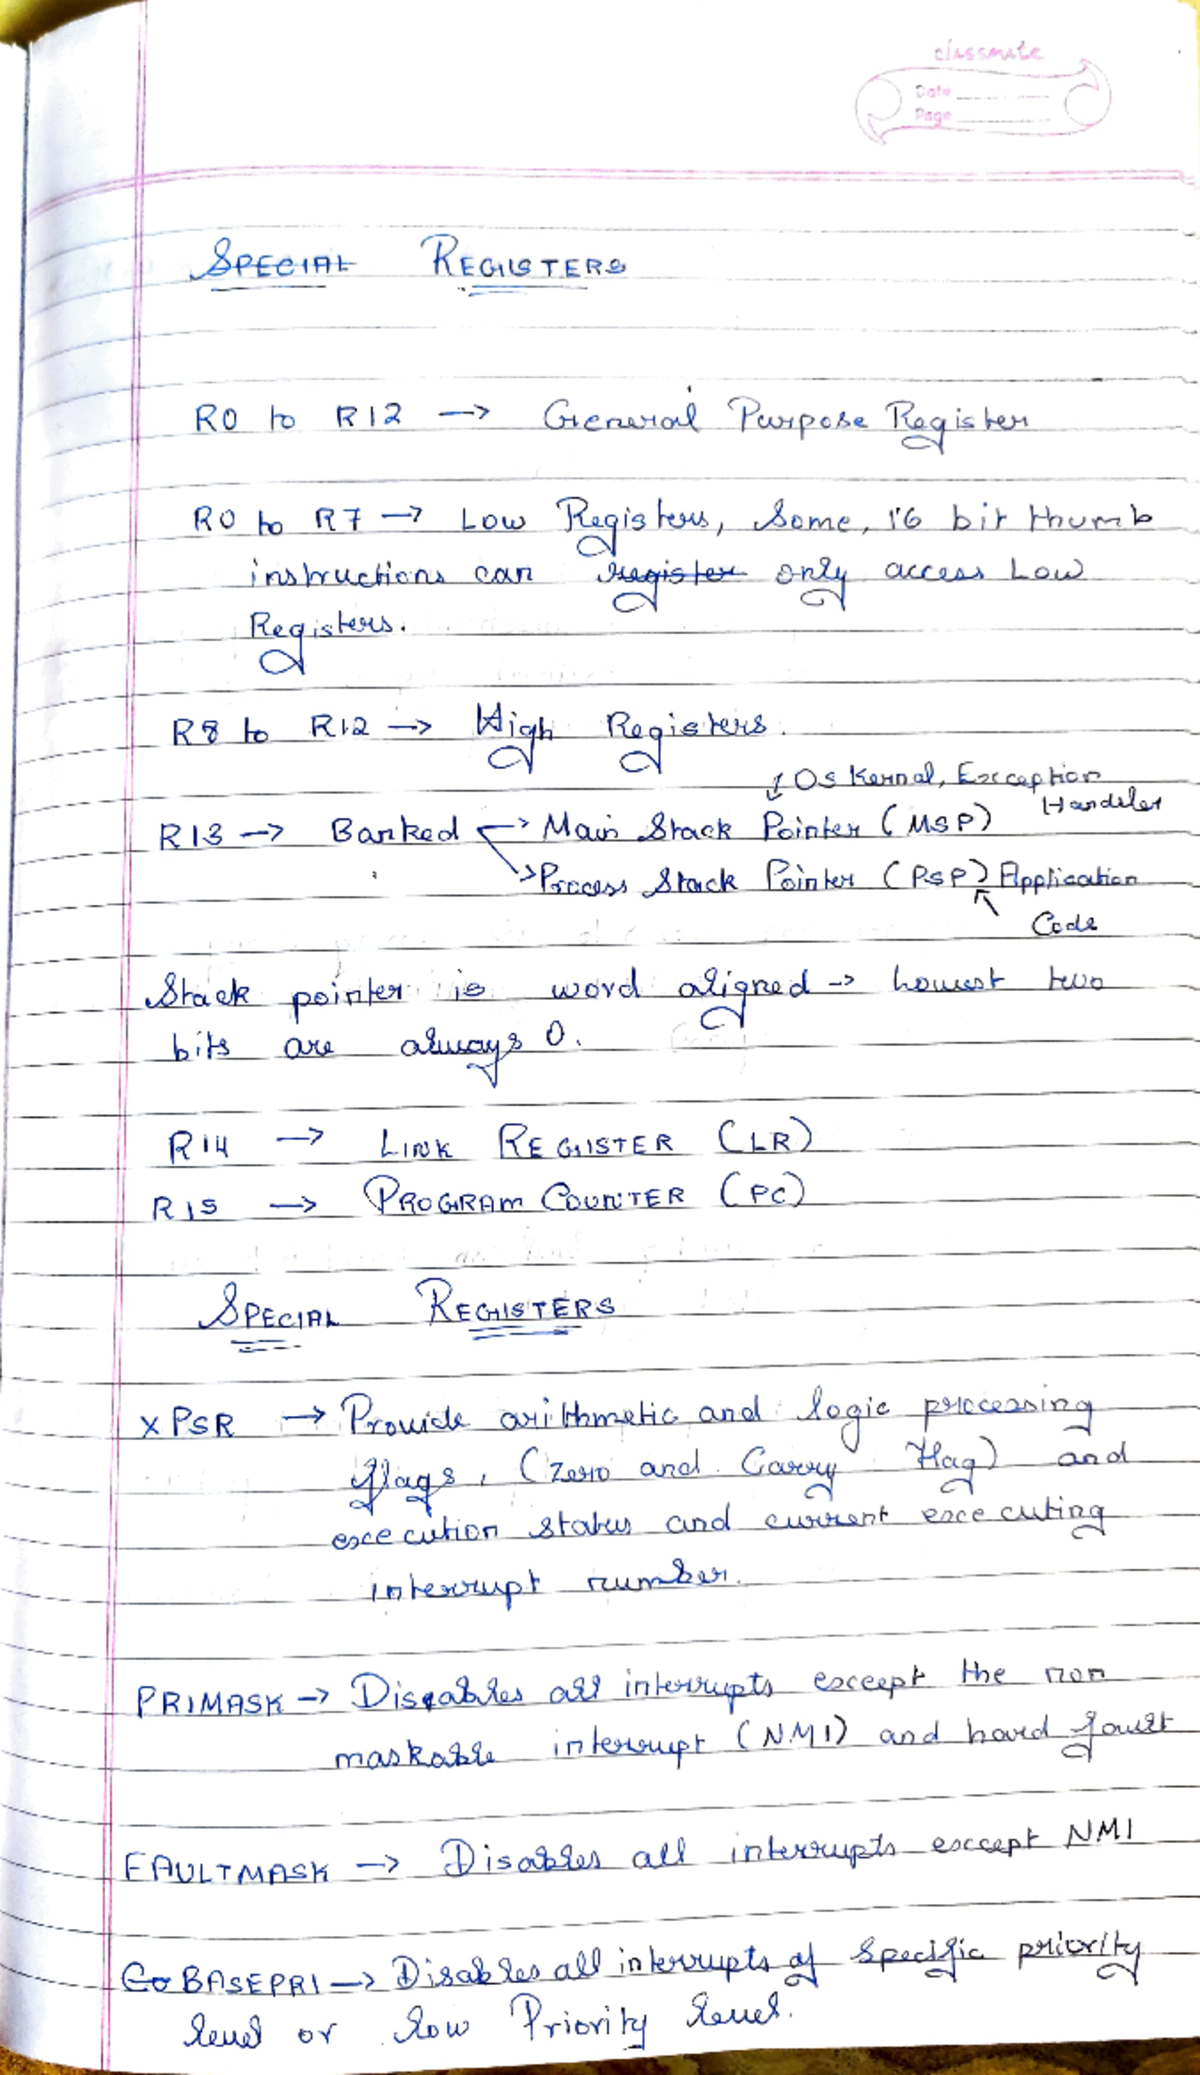 classmate
Date
Page
SPECIAL REGISTERS
R0 to R12 → General Purpose Register
R0 to R7 → Low Registers, Some, 16 bit thumb
instructions can register only access Low
Registers.
R8 to R12 → High Registers.
OS Kernal, Exception
Handeler
R13 → Banked → Main Stack Pointer (MSP)
→ Process Stack Pointer (PSP) Application
Code
Stack pointer is word aligned → lowest two
bits are always 0.
R14 → LINK REGISTER (LR)
R15 → PROGRAM COUNTER (PC)
SPECIAL REGISTERS
xPSR → Provide arithmetic and logic processing
flags, (zero and Carry Flag) and
execution status and current executing
interrupt number.
PRIMASK → Diseables all interrupts except the non
maskable interrupt (NMI) and hard fault
FAULTMASK → Disables all interrupts except NMI
Co BASEPRI → Disables all interrupts of Specific priority
level or low Priority level.